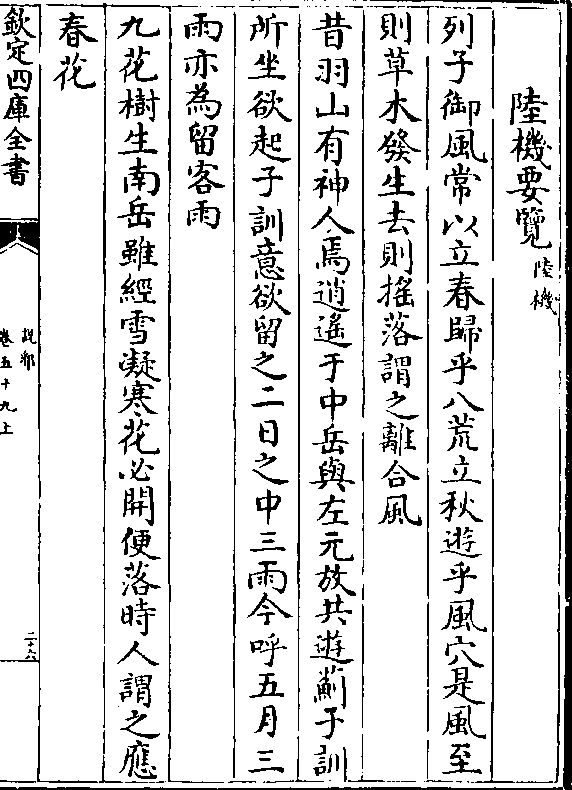 陸機要覽 陸機
列子御風常以立春歸乎八荒立秋遊乎風穴是風至
則草木發生去則搖落謂之離合風
昔羽山有神人焉逍遙于中岳與左元放共遊薊子訓
所坐欲起子訓意欲留之二日之中三雨今呼五月三
雨亦為留客雨
九花樹生南岳雖經雪凝寒花必開便落時人謂之應
春花
欽定四庫全書
說郛
卷五十九上
二十六